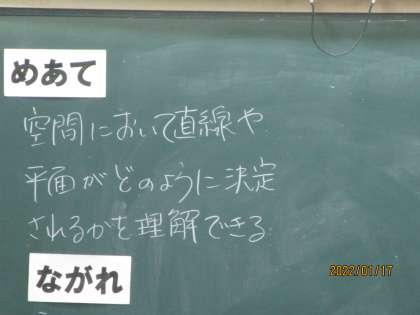 めあて
空間において直線や
平面がどのように決定
されるかを理解できる
ながれ
2022/01/17